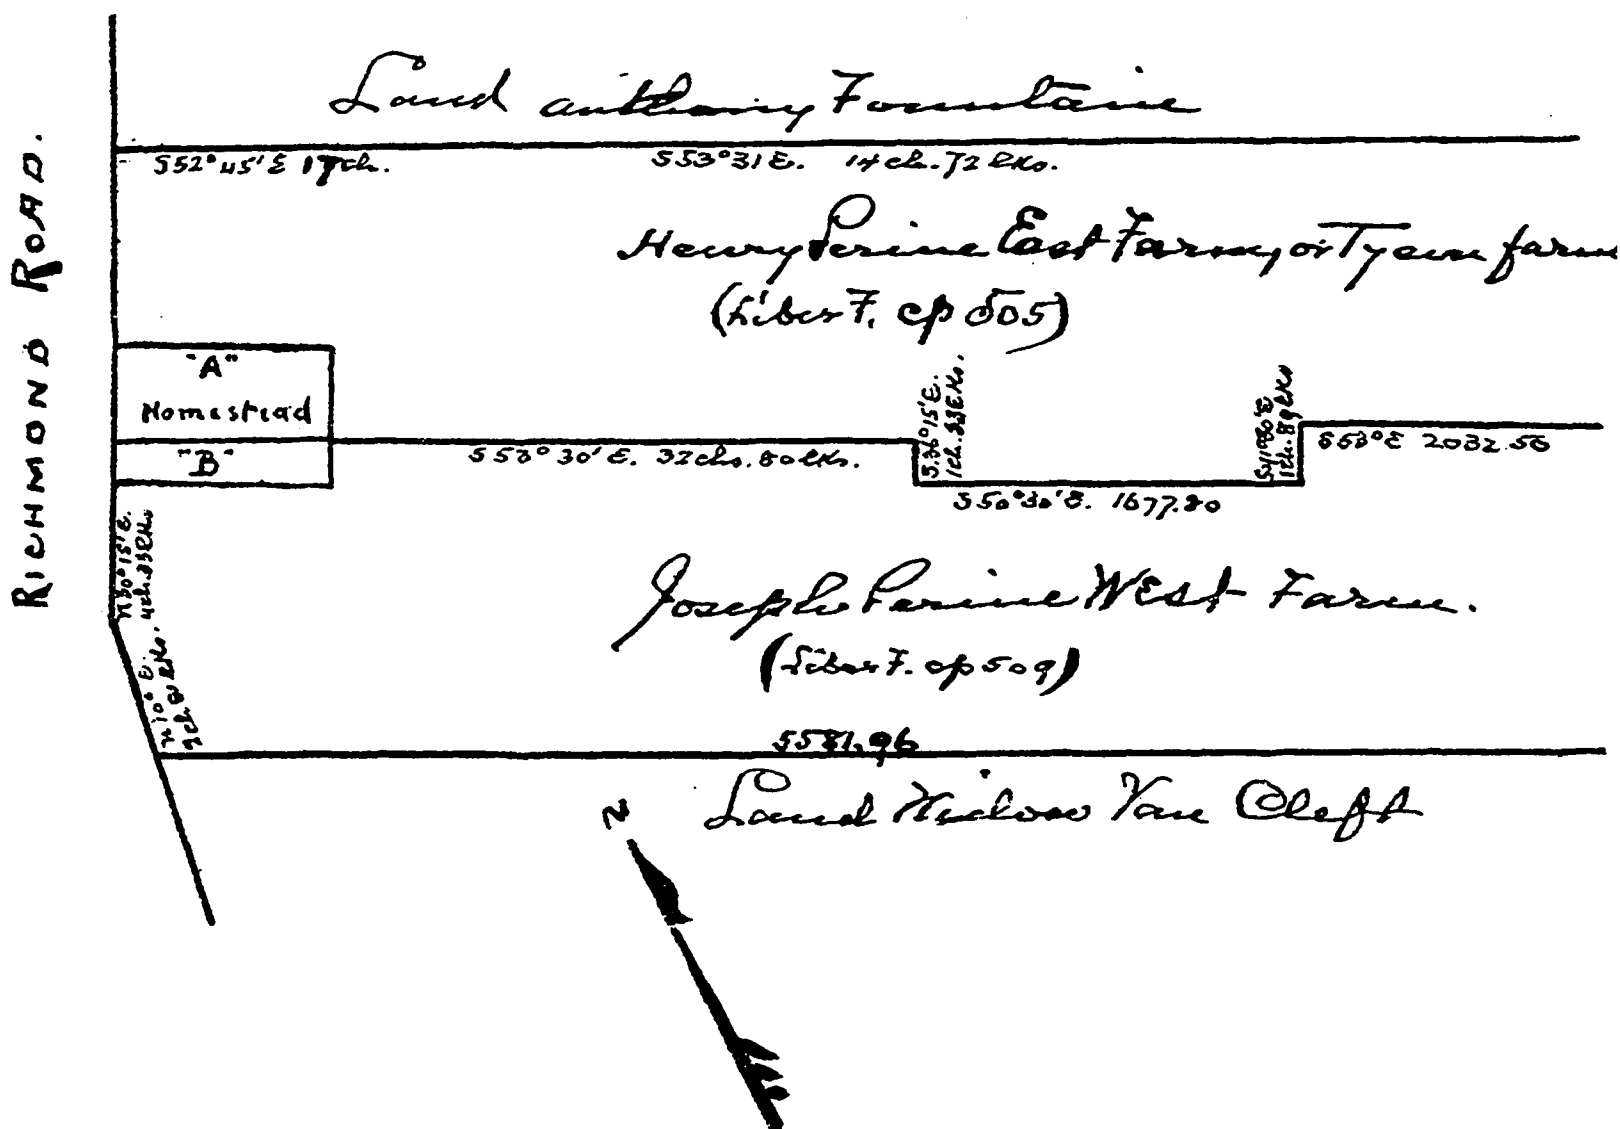 RICHMOND ROAD.
Land Anthony Fountain
S52°45'E 17ch.
S53°31E. 14ch. 72 lks.
Henry Perine East Farm, or Tysen farm
(Liber F. cp 505)
"A"
Homestead
"B"
S53°30'E. 32chs. 80lks.
S.36°15'E.
1ch.
S50°30'E. 1677.80
1ch. 89 lks
S53°E 2032.56
N30°15'E.
4ch. 33lks
N 10° E.
lks.
Joseph Perine West Farm.
(Liber F. cp 509)
5581.96
Land Widow Van Cleft
N